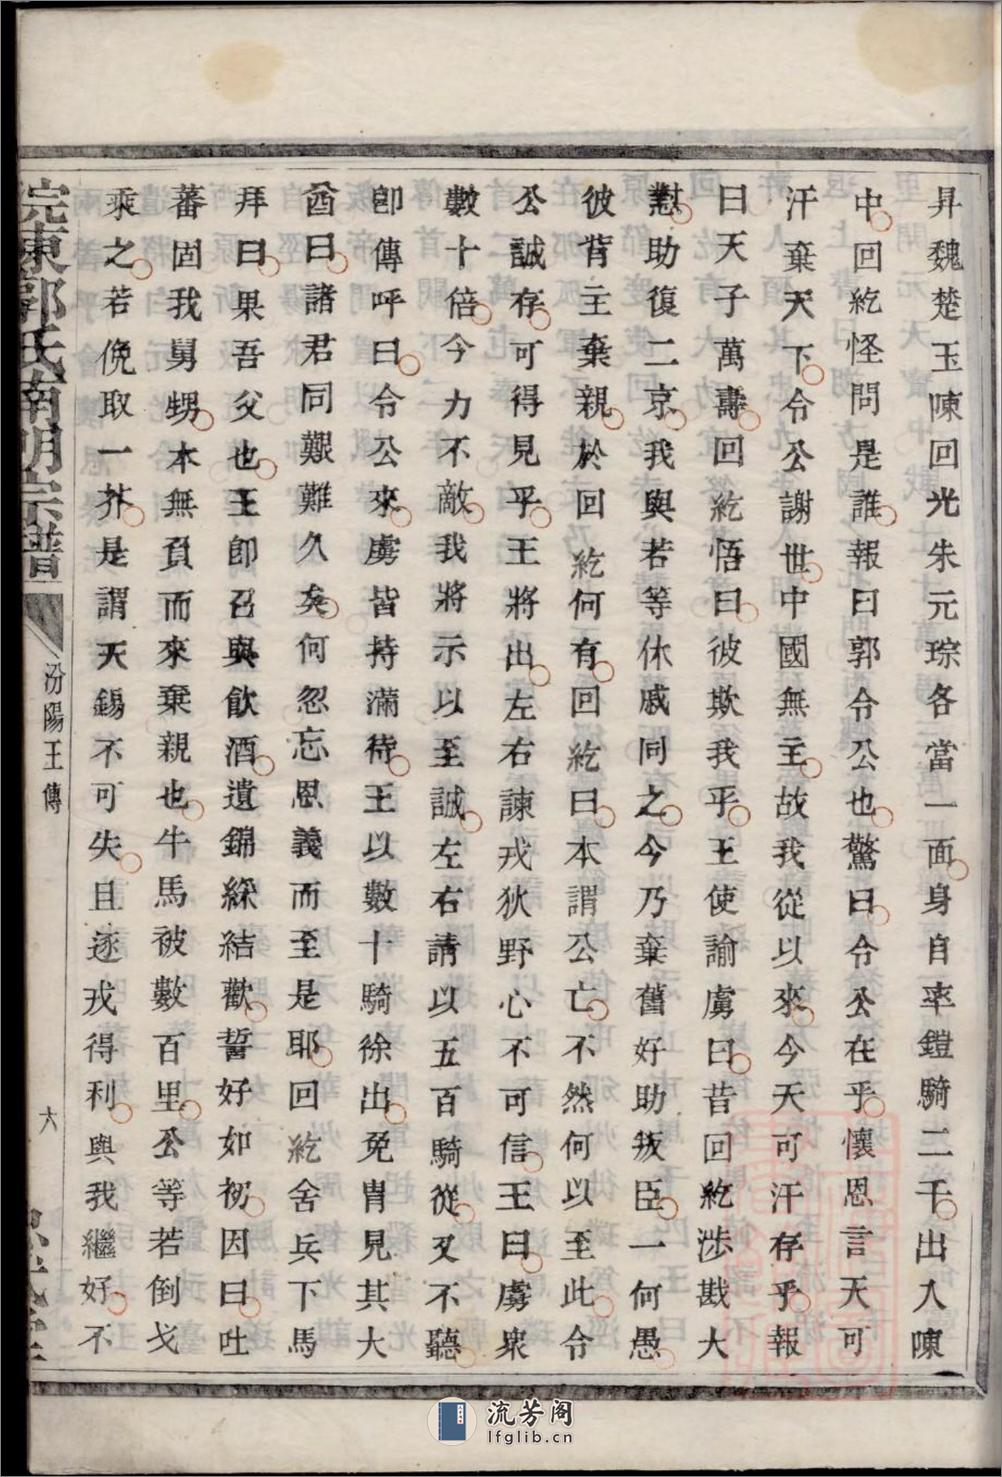 昇魏楚玉陳回光朱元琮各當一面身自率鎧騎二千出入陳
中回紇怪問是誰報曰郭令公也驚曰令公在乎懷恩言天可
汗棄天下令公謝世中國無主故我從以來今天可汗存乎報
曰天子萬壽回紇悟曰彼欺我乎王使諭虜曰昔回紇涉戡大
懟助復二京我與若等休戚同之今乃棄舊好助叛臣一何愚
彼背主棄親於回紇何有回紇曰本謂公亡不然何以至此令
公誠存可得見乎王將出左右諫戎狄野心不可信王曰虜衆
數十倍今力不敵我將示以至誠左右請以五百騎從又不聽
卽傳呼曰令公來虜皆持滿待王以數十騎徐出免冑見其大
酋曰諸君同艱難久矣何忽忘恩義而至是耶回紇舍兵下馬
拜曰果吾父也王卽召與飮酒遺錦綵結歡誓好如初因曰吐
蕃固我舅甥本無負而來棄親也牛馬被數百里公等若倒戈
乘之若俛取一芥是謂天錫不可失且逐戎得利與我繼好不
浣東郭氏南明宗譜
汾陽王傳
六
流芳阁
lfglib.cn